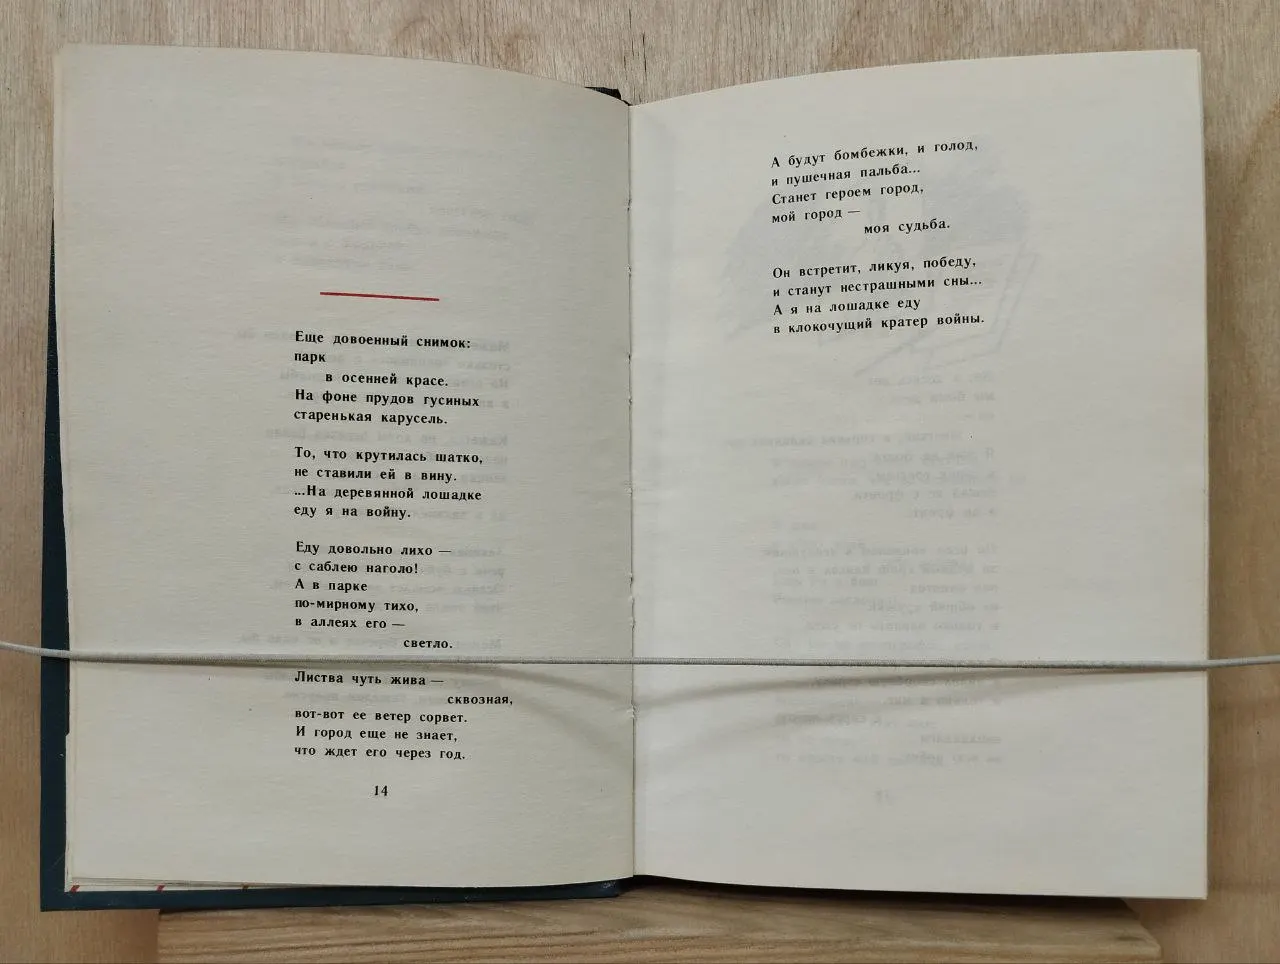 Еще довоенный снимок:
парк
в осенней красе.
На фоне прудов гусиных
старенькая карусель.
То, что крутилась шатко,
не ставили ей в вину.
...На деревянной лошадке
еду я на войну.
Еду довольно лихо —
с саблею наголо!
А в парке
по-мирному тихо,
в аллеях его —
светло.
Листва чуть жива —
сквозная,
вот-вот ее ветер сорвет.
И город еще не знает,
что ждет его через год.
14
А будут бомбежки, и голод,
и пушечная пальба...
Станет героем город,
мой город —
моя судьба.
Он встретит, ликуя, победу,
и станут нестрашными сны...
А я на лошадке еду
в клокочущий кратер войны.